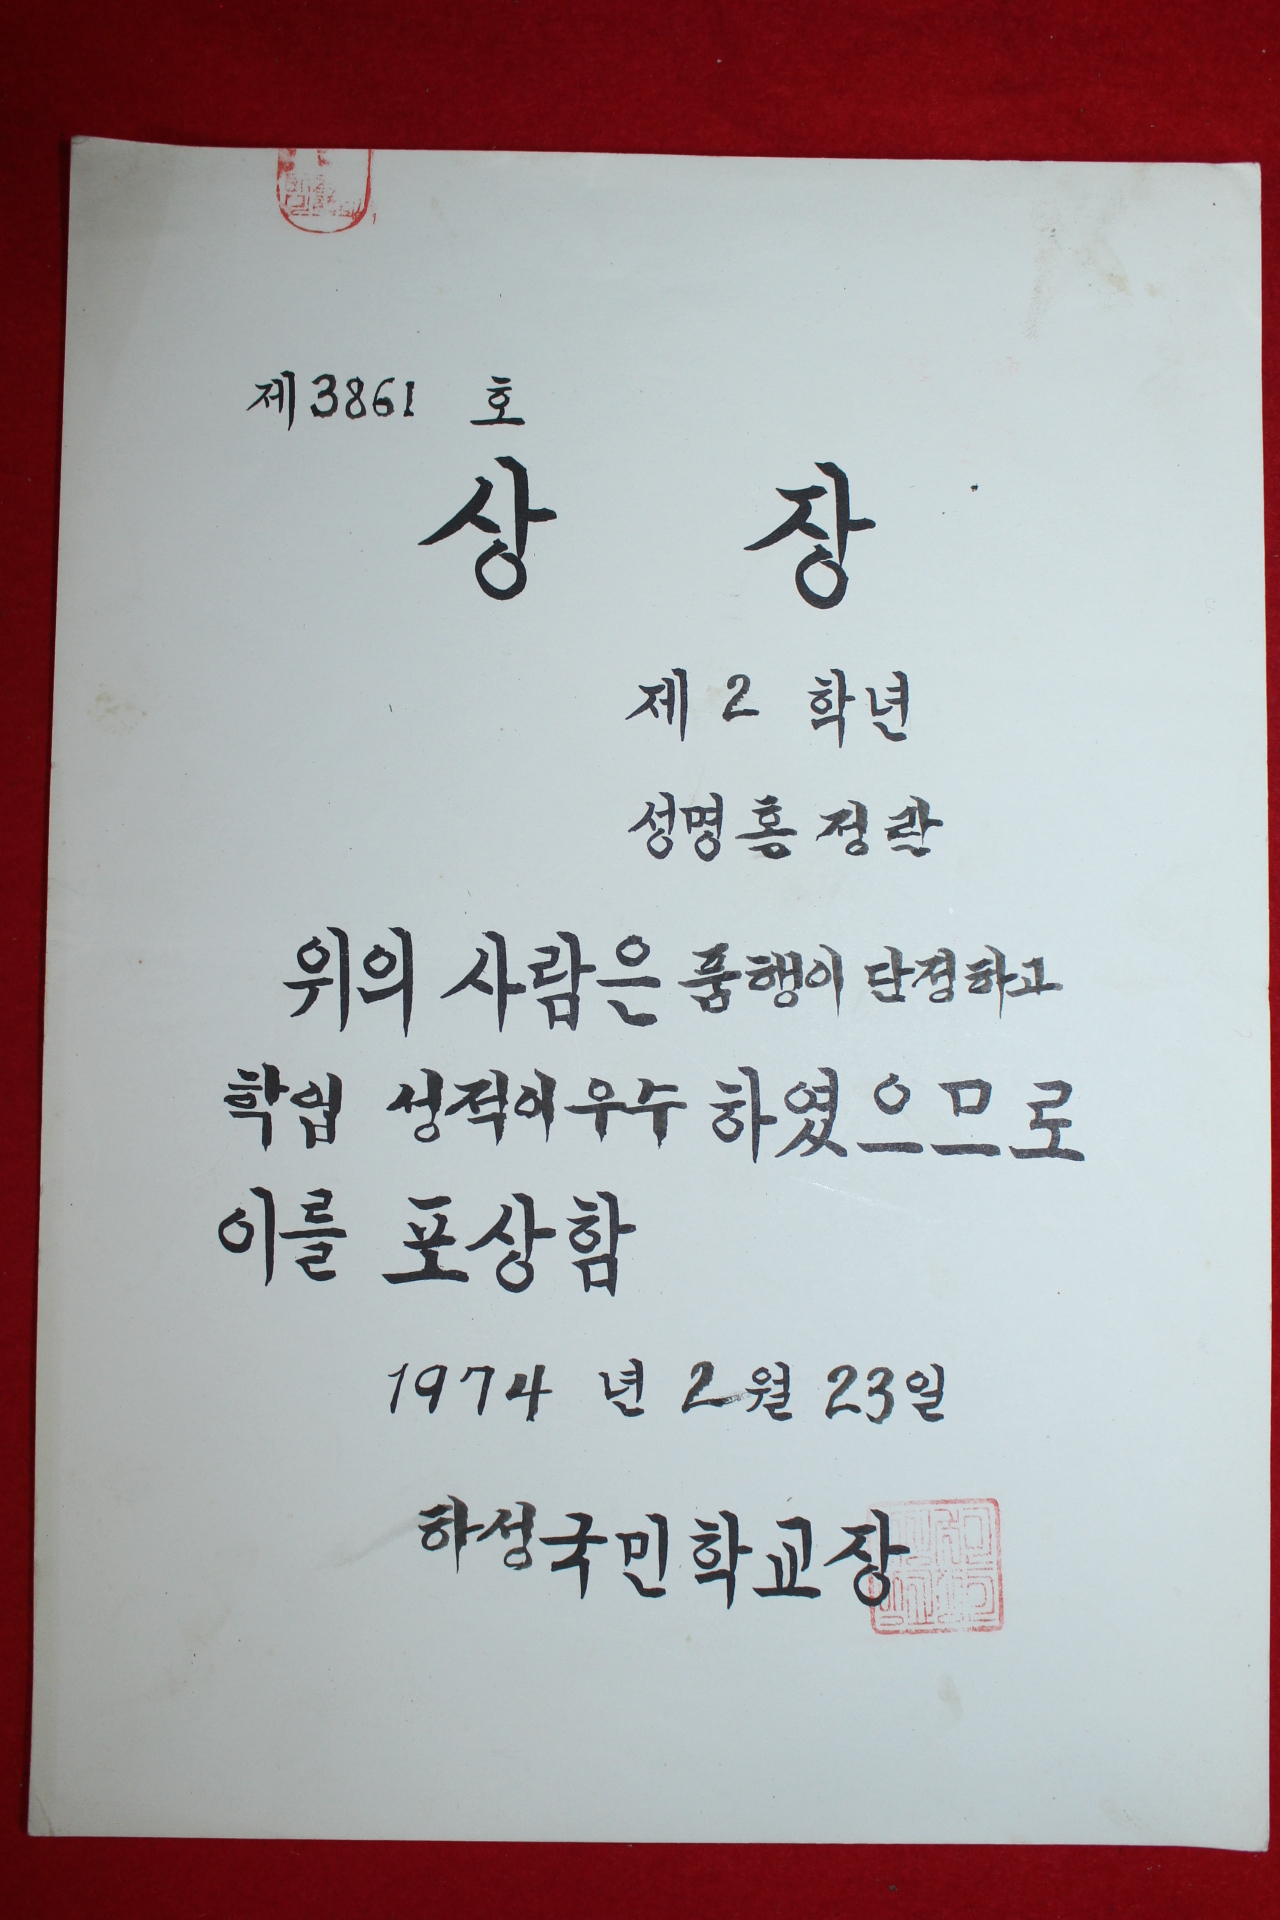 제3861 호
상 장
제 2 학년
성명 홍정란
위의 사람은 품행이 단정하고
학업 성적이 우수 하였으므로
이를 포상함
1974 년 2 월 23일
하성국민학교장